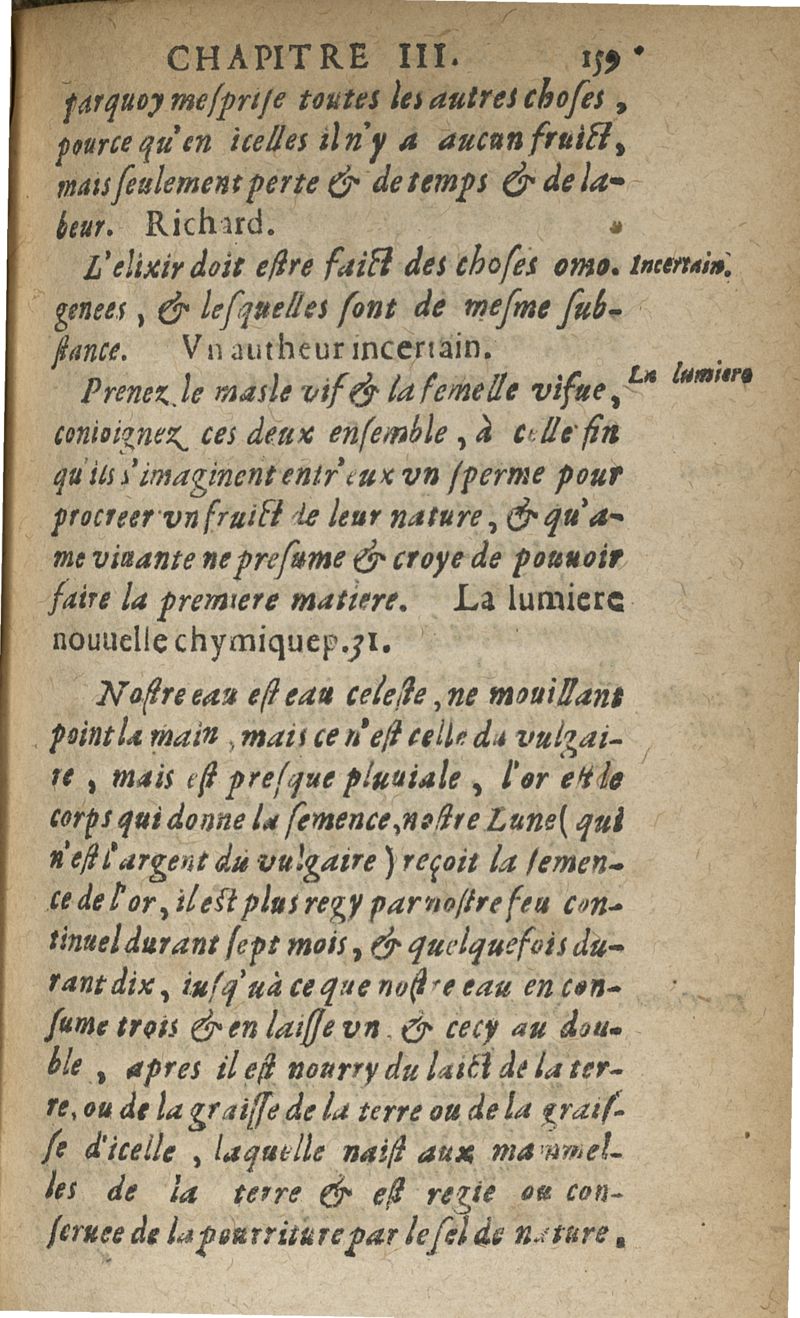 CHAPITRE III. 159
parquoy meſpriſe toutes les autres choſes,
pource qu'en icelles il n'y a aucun fruict,
mais ſeulement perte & de temps & de la-
beur. Richard.
L'elixir doit eſtre faict des choſes omo. Incertain.
genees, & leſquelles ſont de meſme ſub-
ſtance. Vn autheur incertain.
Prenez le masle vif & la femelle vifue, La lumiere
conioignez ces deux enſemble, à celle fin
qu'ils s'imaginent entr'eux vn ſperme pour
procreer vn fruict de leur nature, & qu'a-
me viuante ne preſume & croye de pouuoir
faire la premiere matiere. La lumiere
nouuelle chymique p. 31.
Noſtre eau eſt eau celeſte, ne mouillant
point la main, mais ce n'eſt celle du vulgai-
re, mais eſt preſque pluuiale, l'or eſt le
corps qui donne la ſemence, noſtre Lune (qui
n'eſt l'argent du vulgaire) reçoit la ſemen-
ce de l'or, il eſt plus regy par noſtre feu con-
tinuel durant ſept mois, & quelquefois du-
rant dix, iuſqu'à ce que noſtre eau en con-
ſume trois & en laiſſe vn. & cecy au dou-
ble, apres il eſt nourry du laict de la ter-
re, ou de la graiſſe de la terre ou de la graiſ-
ſe d'icelle, laquelle naiſt aux mammel-
les de la terre & eſt regie ou con-
ſeruee de la pourriture par le ſel de nature.